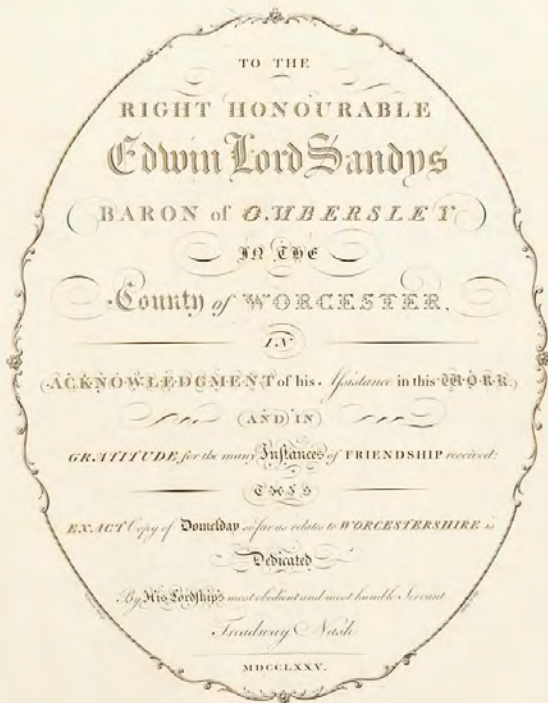 TO THE
RIGHT HONOURABLE
Edwin Lord Sandys
BARON of OMBERSLEY
IN THE
County of WORCESTER.
IN
ACKNOWLEDGMENT of his Assistance in this WORK
AND IN
GRATITUDE for the many Instances of FRIENDSHIP received:
THIS
EXACT Copy of Domesday so far as relates to WORCESTERSHIRE is
Dedicated
By His Lordship's most obedient and most humble Servant
Treadway Nash
MDCCLXXV.